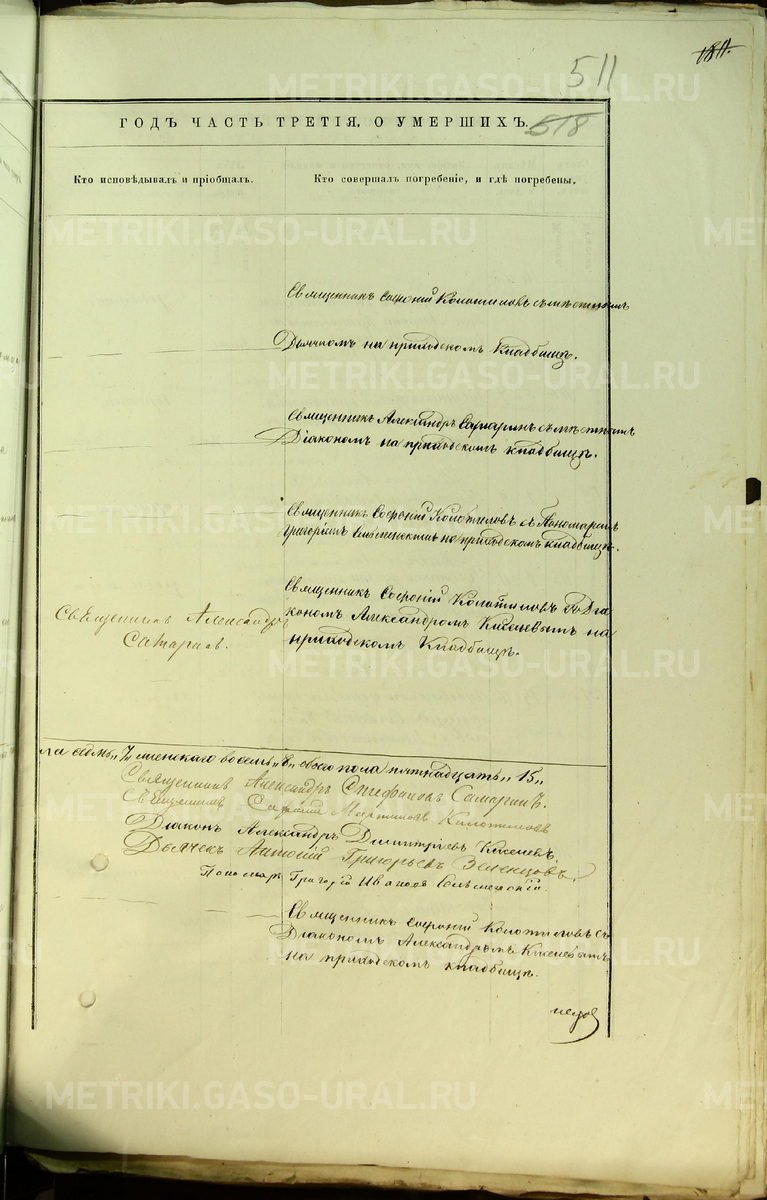 511
ГОДЪ ЧАСТЬ ТРЕТІЯ, О УМЕРШИХЪ.
518
Кто исповѣдывалъ и пріобщалъ.
Кто совершалъ погребеніе, и гдѣ погребены.
METRIKI.GASO-URAL.RU
Священникъ Софроній Колотиловъ съ мѣстнымъ
Дьячкомъ на приходскомъ кладбищѣ.
Священникъ Александръ Самаринъ съ мѣстнымъ
Діакономъ на приходскомъ кладбищѣ.
Священникъ Софроній Колотиловъ съ Пономаремъ
Григоріемъ на приходскомъ кладбищѣ.
Священникъ Александръ
Самаринъ.
Священникъ Софроній Колотиловъ съ Діа
кономъ Александромъ Киселевымъ на
приходскомъ кладбищѣ.
ла седмь „7„ женскаго восемь „8„ обоего пола пятнадцать „15„
Священникъ Александръ Стефановъ Самаринъ.
Священникъ Софроній Мартиновъ Колотиловъ
Діаконъ Александръ Димитріевъ Киселевъ.
Дьячекъ Антоній Григорьевъ Зеленцовъ.
Пономарь Григорій Ивановъ
Священникъ Софроній Колотиловъ съ
Діакономъ Александромъ Киселевымъ
на приходскомъ кладбищѣ.